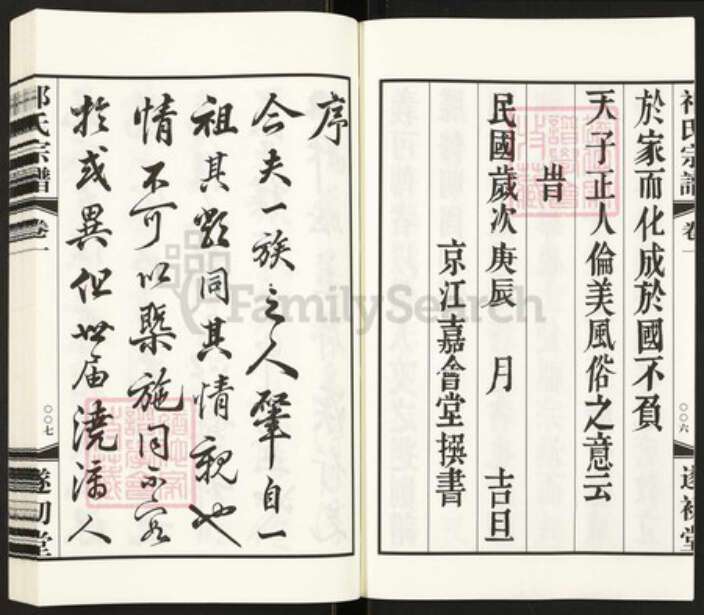 於家而化成於國不負
天子正人倫美風俗之意云
旹
民國歲次庚辰 月 吉旦
京江嘉會堂撰書
氏宗譜 卷一
〇〇六
遂初堂
序
今夫一族之人肇自一
祖其類同其情親也
情不可以槩施同不容
於或異但世届澆漓人
氏宗譜 卷一
〇〇七
遂初堂
FamilySearch